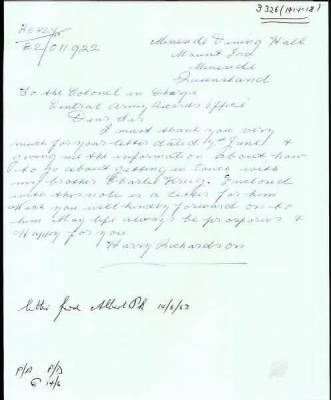 3326 (14-4-18)
REPLY
22/011922
Mineside Dining Hall
Mount Isa
Mineside
Queensland
To the Colonel in Charge
Central Army Records Office
Dear Sir
I must thank you very
much for your letter dated 4th June &
giving me the information about how
to go about getting in touch with
my brother Charlie King. Enclosed
with this note is a letter for him
Wich you will kindly forward on to
him May life always be prosperus &
Happy for you
Harry Richardson
letter fwd Albert Pk 14/6/63
P/A P/D
14/6